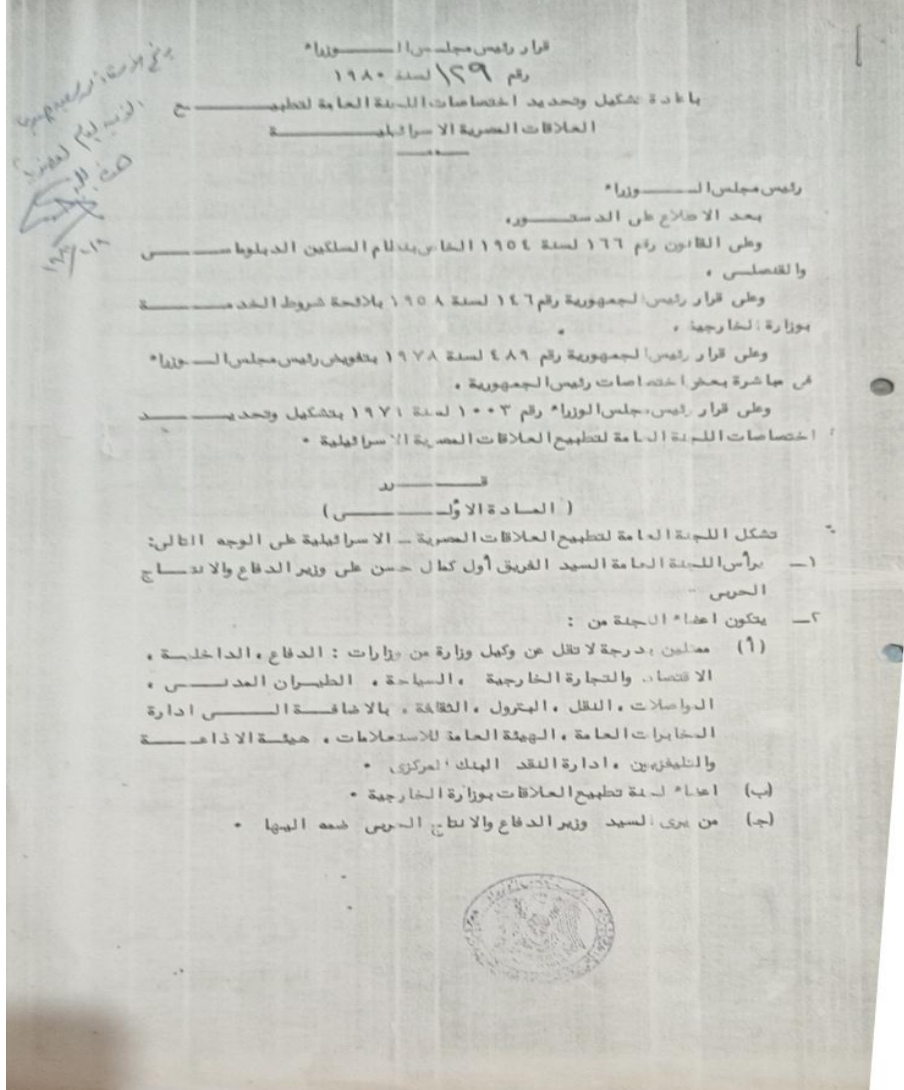 قرار رئيس مجلس الـــوزراء
رقم ١٢٩ لسنة ١٩٨٠
باعادة تشكيل وتحديد اختصاصات اللجنة العامة لتطبيـــع
العلاقات المصرية الاسرائيليـــة
رئيس مجلس الـــوزراء
بعد الاطلاع على الدستـــور،
وعلى القانون رقم ١٦٦ لسنة ١٩٥٤ الخاص بنظام السلكين الدبلوماســـى
والقنصلـى ،
وعلى قرار رئيس الجمهورية رقم ١٤٦ لسنة ١٩٥٨ بلائحة شروط الخدمـــة
بوزارة الخارجية ،
وعلى قرار رئيس الجمهورية رقم ٤٨٩ لسنة ١٩٧٨ بتفويض رئيس مجلس الـــوزراء
فى مباشرة بعض اختصاصات رئيس الجمهورية ،
وعلى قرار رئيس مجلس الوزراء رقم ١٠٠٣ لسنة بتشكيل وتحديـــد
اختصاصات اللجنة العامة لتطبيع العلاقات المصرية الاسرائيلية .
قـــرر
( المـادة الاولـــى )
تشكل اللجنة العامة لتطبيع العلاقات المصرية ــ الاسرائيلية على الوجه التالى:
١ــ يرأس اللجنة العامة السيد الفريق أول كمال حسن على وزير الدفاع والانتـــاج
الحربى
٢ــ يتكون اعضاء اللجنة من :
(أ) ممثلين بدرجة لا تقل عن وكيل وزارة من وزارات : الدفاع ، الداخليـة ،
الاقتصاد والتجارة الخارجية ، السياحة ، الطيـران المدنـــى ،
المواصلات ، النقل ، البترول ، الثقافة ، بالاضافـــة الـــى ادارة
المخابرات العامة ، الهيئة العامة للاستعلامات ، هيئـة الاذاعـــة
والتليفزيون ، ادارة النقد البنك المركزى .
(ب) اعضاء لجنة تطبيع العلاقات بوزارة الخارجية .
(جـ) من يرى السيد وزير الدفاع والانتاج الحربى ضمه اليها .